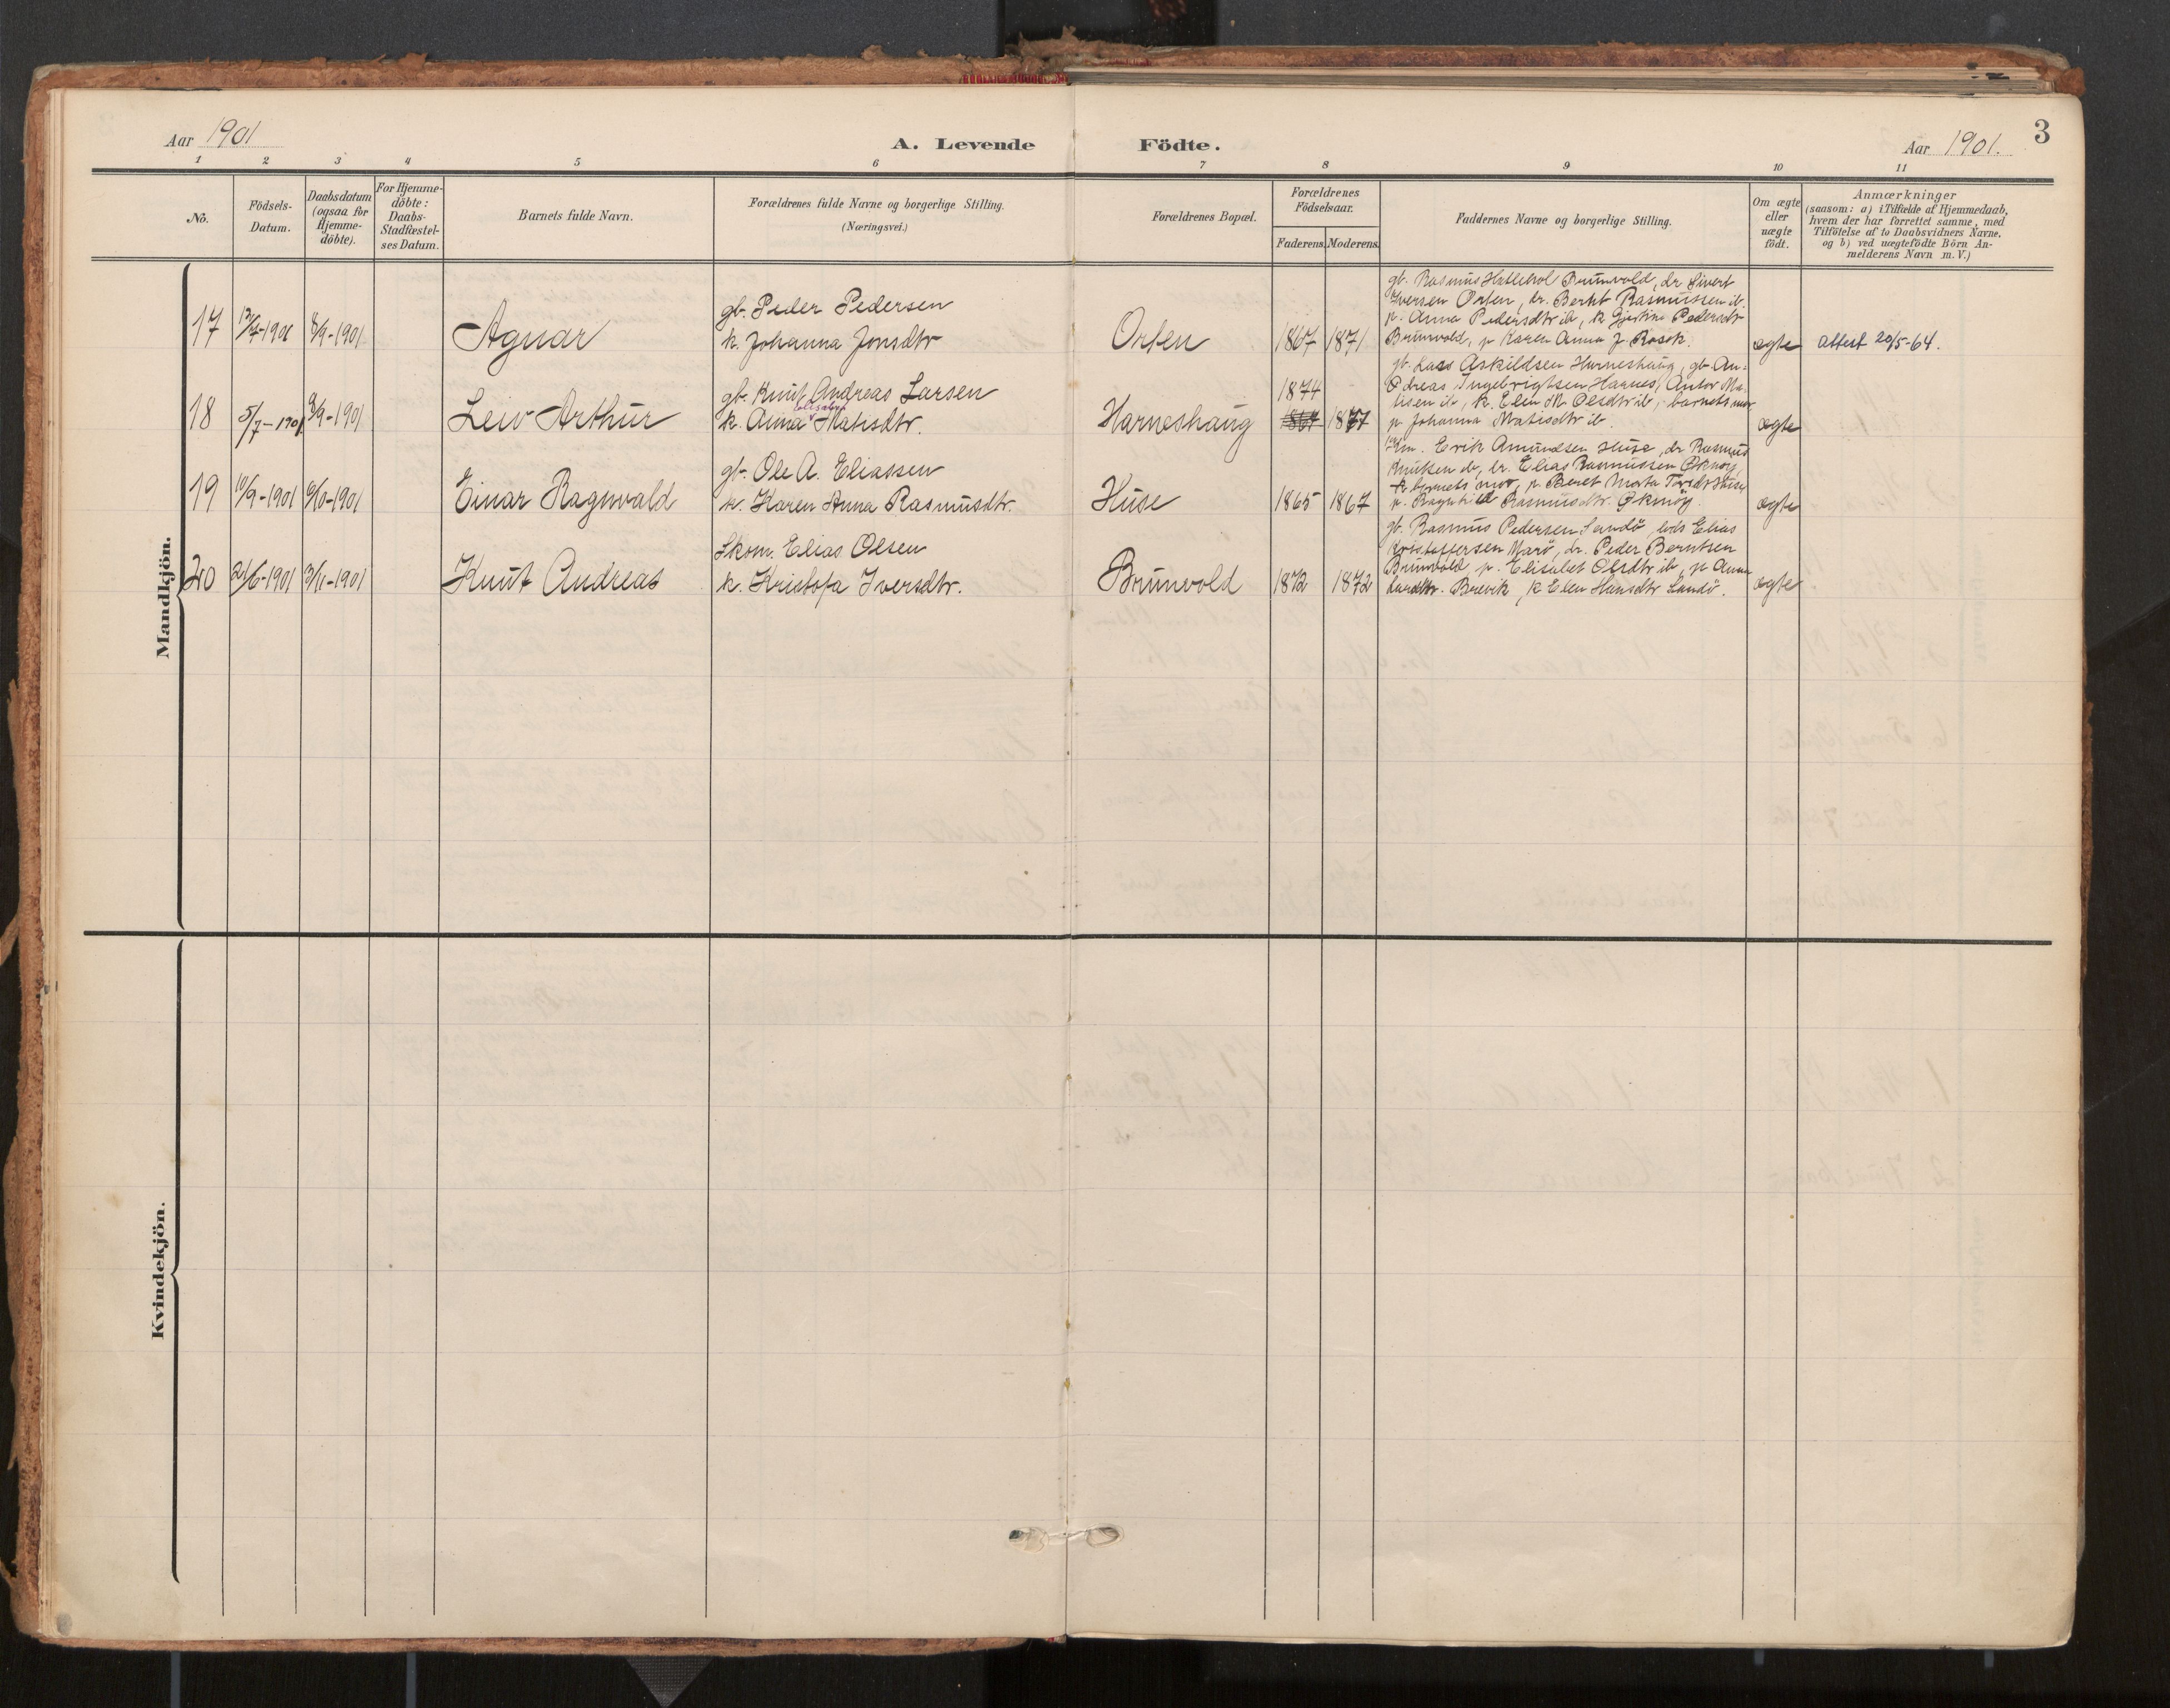 3
Aar 1901
A. Levende Födte.
Aar 1901.
1 2 3 4 5 6 7 8 9 10 11
No.
Födsels-
Datum.
Daabsdatum
(ogsaa for
Hjemme-
döbte).
For Hjemme-
döbte:
Daabs-
Stadfæstel-
ses Datum.
Barnets fulde Navn.
Forældrenes fulde Navne og borgerlige Stilling.
(Næringsvei.)
Forældrenes Bopæl.
Forældrenes
Födselsaar.
Faderens. Moderens.
Faddernes Navne og borgerlige Stilling.
Om ægte
eller
uægte
födt.
Anmærkninger
(saasom: a) i Tilfælde af Hjemmedaab,
hvem der har forrettet samme, med
Tilföielse af to Daabsvidners Navne,
og b) ved uægtefödte Börn An-
melderens Navn m. V.)
Mandkjön.
17 13/7-1901 8/9-1901 Agnar
gb. Peder Pedersen
k. Johanna Jonsdtr
Orten 1867 1871
gb. Rasmus Hatlebol Brunvold, dr Sivert
Iversen Orten, dr. Berht Rasmussen ib.
p. Anna Pedersdtr ib, k Gjertine Pedersdtr
Brunvold, p Karen Anna J. Røsok.
ægte attest 20/5-64.
18 5/7-1901 8/9-1901 Leiv Arthur
gb. Knut Andreas Larsen
Elisabet
k. Anna Matisdtr.
Harneshaug 1874 1877
gb. Lars Askildsen Harneshaug, gb. An-
dreas Ingebrigtsen Harnes, Anton Ma-
tisen ib, k. Elen M Olsdtr ib, barnets mor,
p Johanna Matisdtr ib.
ægte
19 10/9-1901 6/10-1901 Einar Ragnvald
gb. Ole A. Eliassen
k. Karen Anna Rasmusdtr.
Huse 1865 1867
Km. Erik Amundsen Huse, dr Rasmus
Knutsen do, dr. Elias Rasmussen Øknøy,
k barnets mor, p Beret Marta Huse
p. Ragnhild Rasmusdtr. Øknøy.
ægte
20 21/6-1901 3/11-1901 Knut Andreas
Skom. Elias Olsen
k. Kristofa Iversdtr.
Brunvold 1872 1872
gb. Rasmus Pedersen Sandö, lods Elias
Kristoffersen Marö, dr. Peder Berntsen
Brunvold p. Elisabet Olsdtr ib, p Anna
Larsdtr. Brevik, k Elen Hansdtr Sandö.
ægte
Kvindekjön.